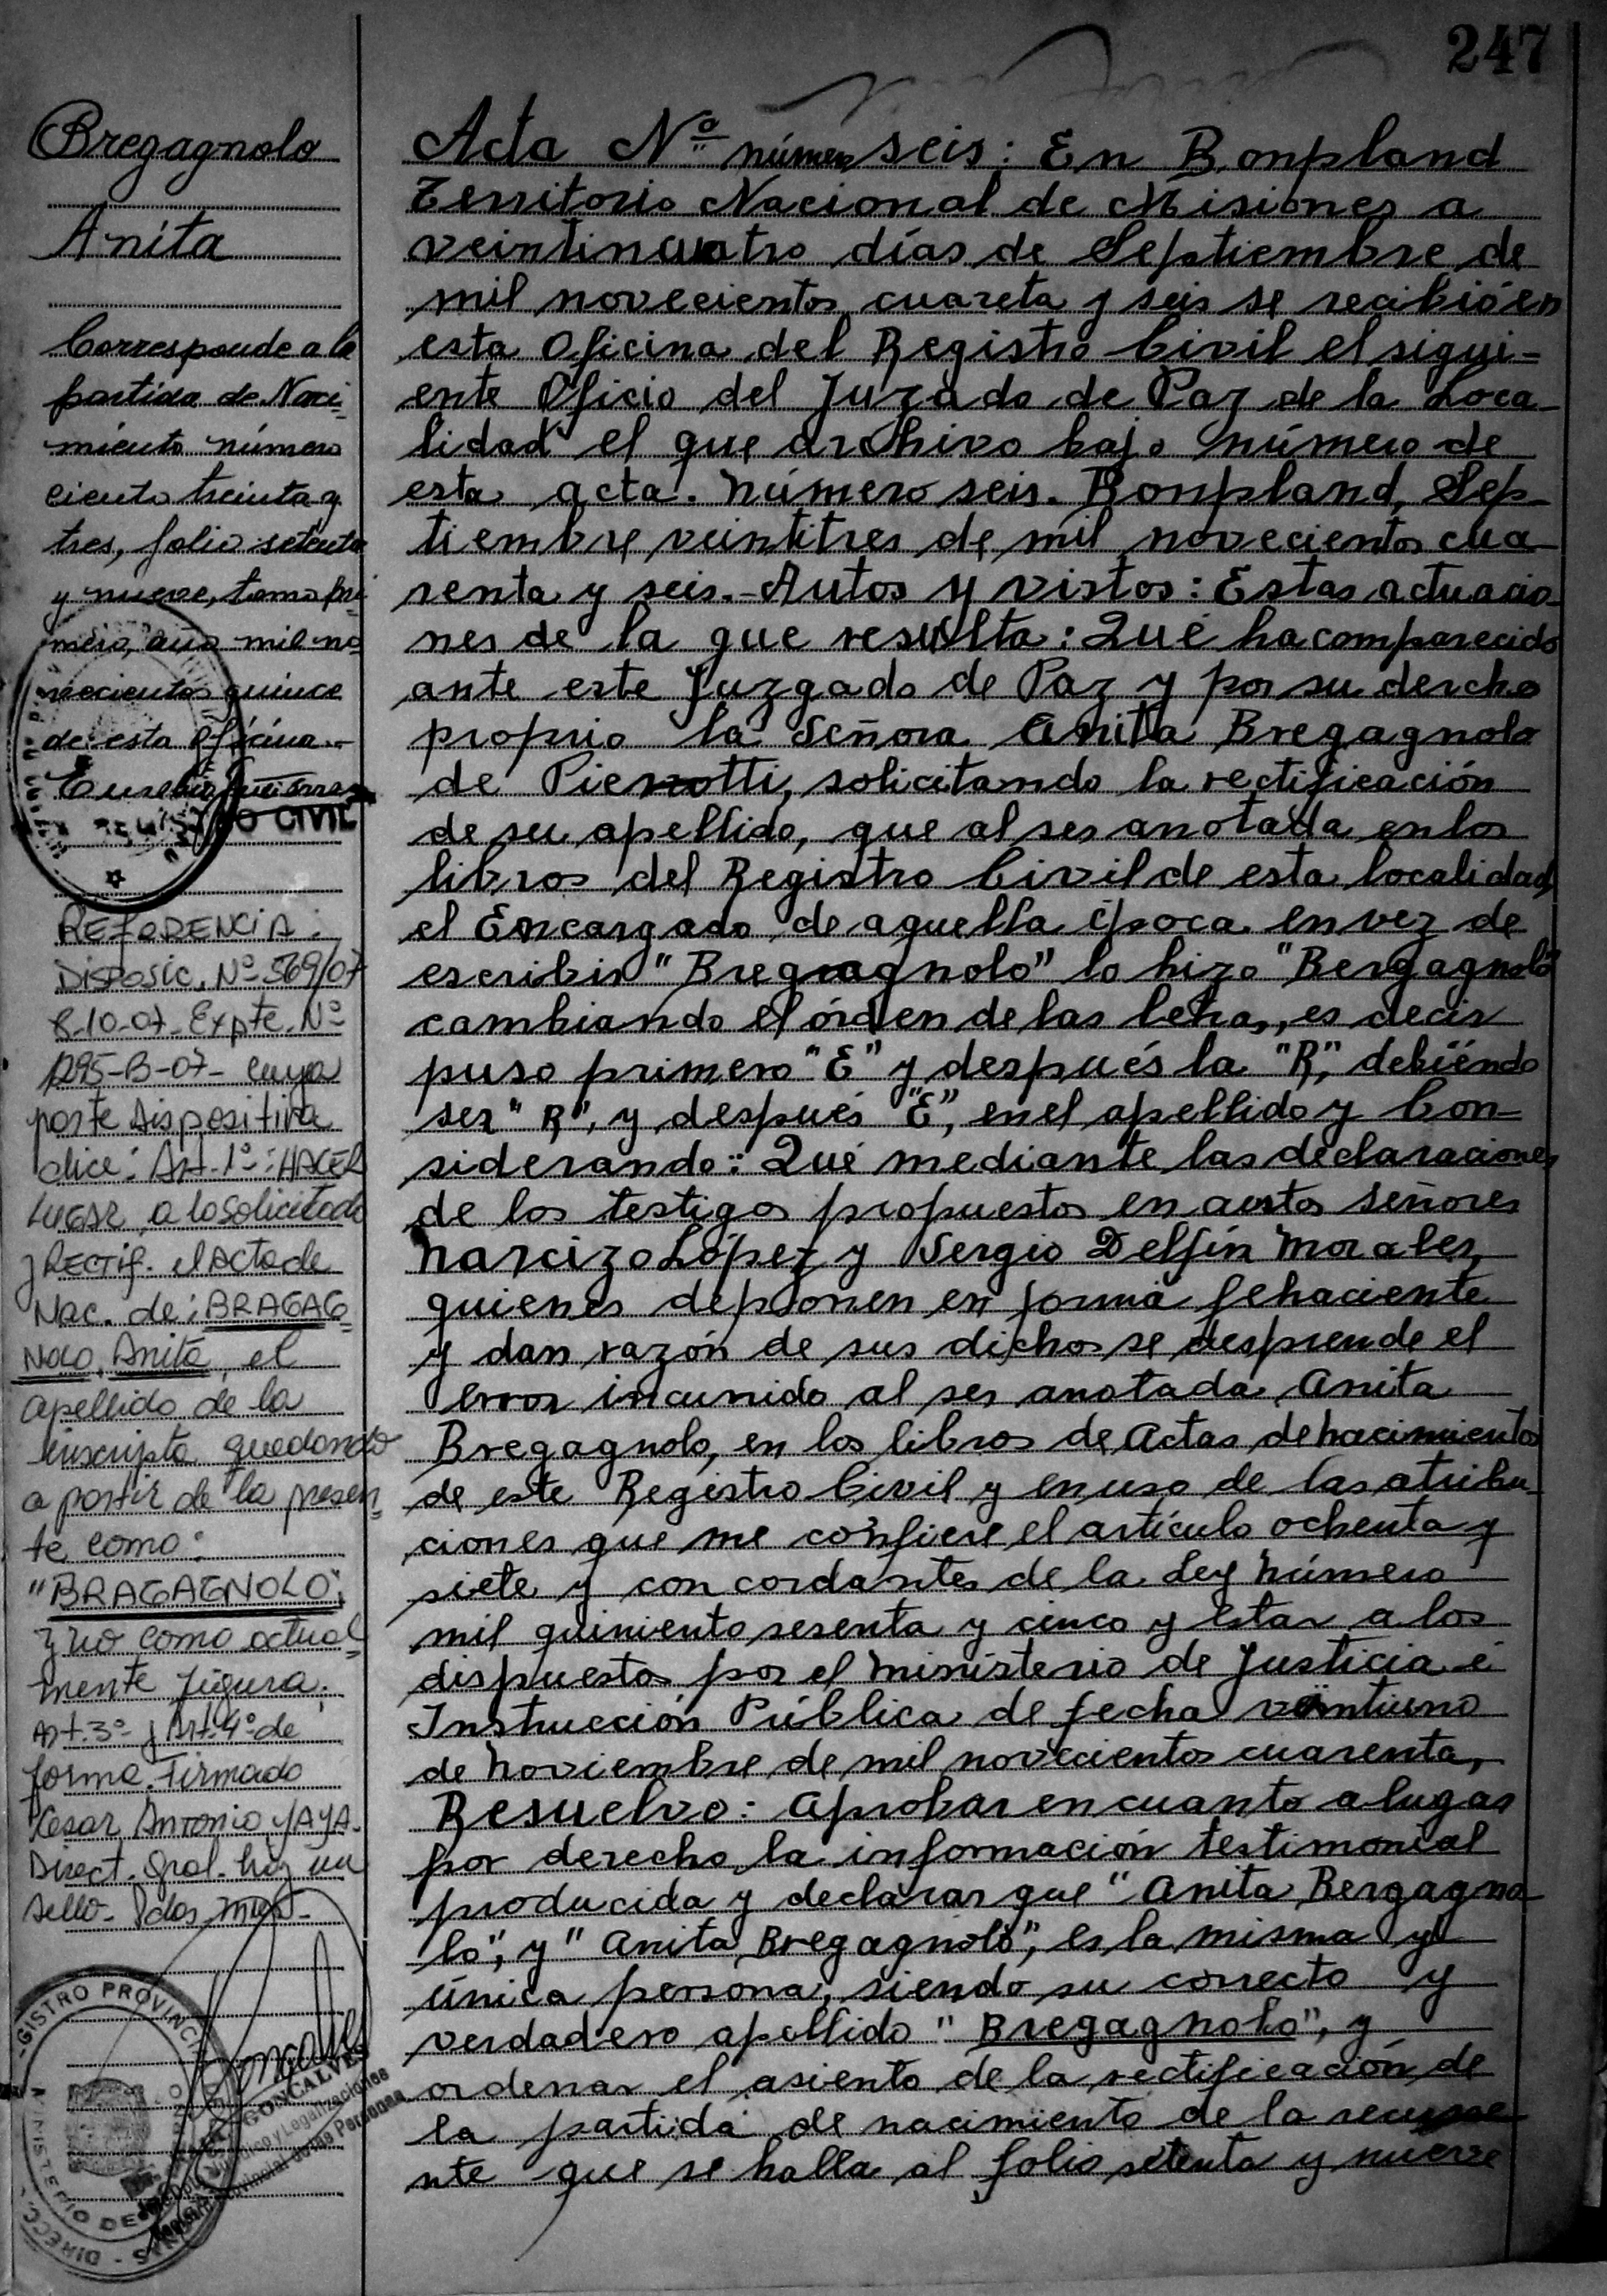 247
Bregagnolo
Anita
Corresponde a la
partida de Naci-
miento número
ciento treinta y
tres, folio setenta
y nueve, tomo pri
mero, año mil no
vecientos quince
de esta Oficina.-
REGISTRO CIVIL
REFERENCIA:
Disposic. Nº 569/07
8-10-07- Expte. Nº
1295-B-07- cuya
parte Dispositiva
dice: Art. 1º: HACER
LUGAR a lo solicitado
y RECTIF. el Acta de
Nac. de: BRAGAG
NOLO, Anita, el
apellido de la
inscripta quedando
a partir de la presen
te como:
"BRAGAGNOLO",
y no como actual
mente figura.
Art. 3º y Art. 4º de
forma. Firmado
Cesar Antonio YAYA.
Direct. Gral. hay un
sello. Pdas, mnes.
Acta Nº número seis: En Bonpland
Territorio Nacional de Misiones a
veintincuatro días de Septiembre de
mil novecientos cuareta y seis se recibió en
esta Oficina del Registro Civil el sigui-
ente Oficio del Juzado de Paz de la Loca-
lidad el que archivo bajo número de
esta acta. Número seis. Bonpland, Sep-
tiembre veintitres de mil novecientos cua-
renta y seis.-Autos y vistos: Estas actuacio-
nes de la que resulta: Qué ha comparecido
ante este Juzgado de Paz y por su dercho
proprio la Señora Anita Bregagnolo
de Pierotti, solicitando la rectificación
de su apellido, que al ser anotada en los
libros del Registro Civil de esta localidad,
el Encargado de aquella época en vez de
escribir "Bregagnolo" lo hizo "Bergagnolo"
cambiando el órden de las letras, es decir
puso primero "E" y después la "R", debiéndo
ser "R", y después "E", en el apellido y Con-
siderando: Qué mediante las declaraciones
de los testigos propuestos en autos señores
Narcizo López y Sergio Delfín Morales,
quienes deponen en forma fehaciente
y dan razón de sus dichos se desprende el
error incurrido al ser anotada Anita
Bregagnolo, en los libros de Actas de nacimientos
de este Registro Civil y en uso de las atribu-
ciones que me confiere el artículo ochenta y
siete y concordantes de la Ley Número
mil quiniento sesenta y cinco y estar a los
dispuestos por el Ministerio de Justicia é
Instrucción Pública de fecha veintiuno
de Noviembre de mil novecientos cuarenta,
Resuelvo: Aprobar en cuanto a lugar
por derecho la información testimonial
producida y declarar que "Anita Bergagno-
lo", y "Anita Bregagnolo", es la misma y
única persona, siendo su correcto y
verdadero apellido "Bregagnolo", y
ordenar el asiento de la rectificación de
la partida de nacimiento de la recurre
nte que se halla al folio setenta y nueve